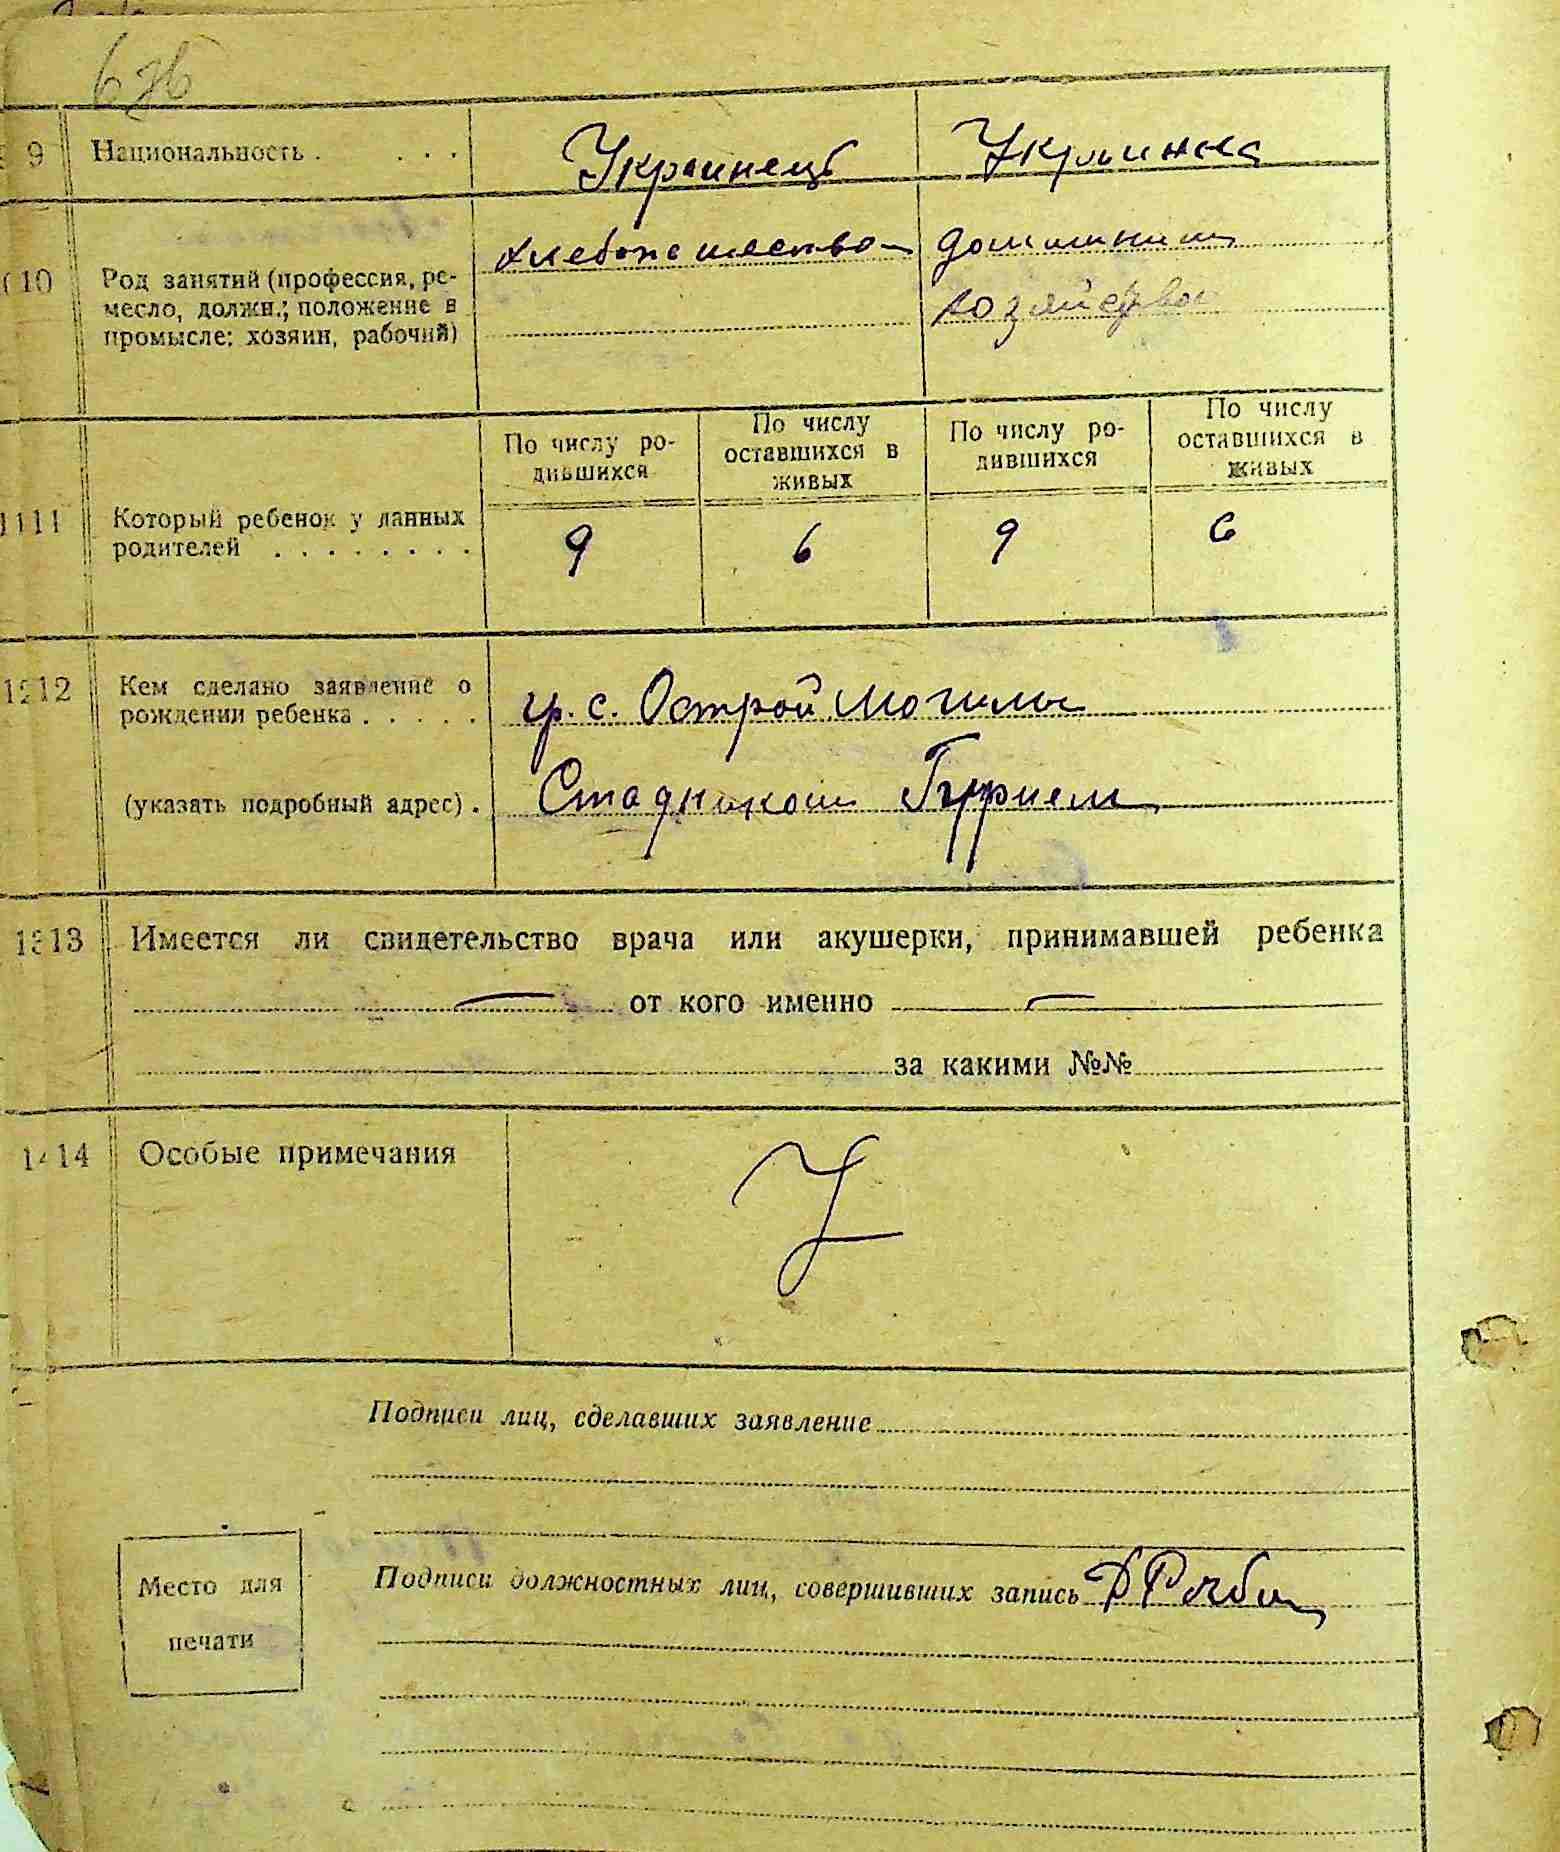 9 Национальность . . . . Украинець Украинка
10 Род занятий (профессия, ре-
месло, должн.; положение в
промысле: хозяин, рабочий)
хлебопашество домашним
хозяйством
По числу ро-
дившихся
По числу
оставшихся в
живых
По числу ро-
дившихся
По числу
оставшихся в
живых
11 Который ребенок у данных
родителей . . . . . . . .
9 6 9 6
12 Кем сделано заявление о
рождении ребенка . . . . .
гр. с. Острой Могилы
(указать подробный адрес) . Стадником Гурием
13 Имеется ли свидетельство врача или акушерки, принимавшей ребенка
— от кого именно —
за какими №№
14 Особые примечания
Подписи лиц, сделавших заявление
Место для
печати
Подписи должностных лиц, совершивших запись